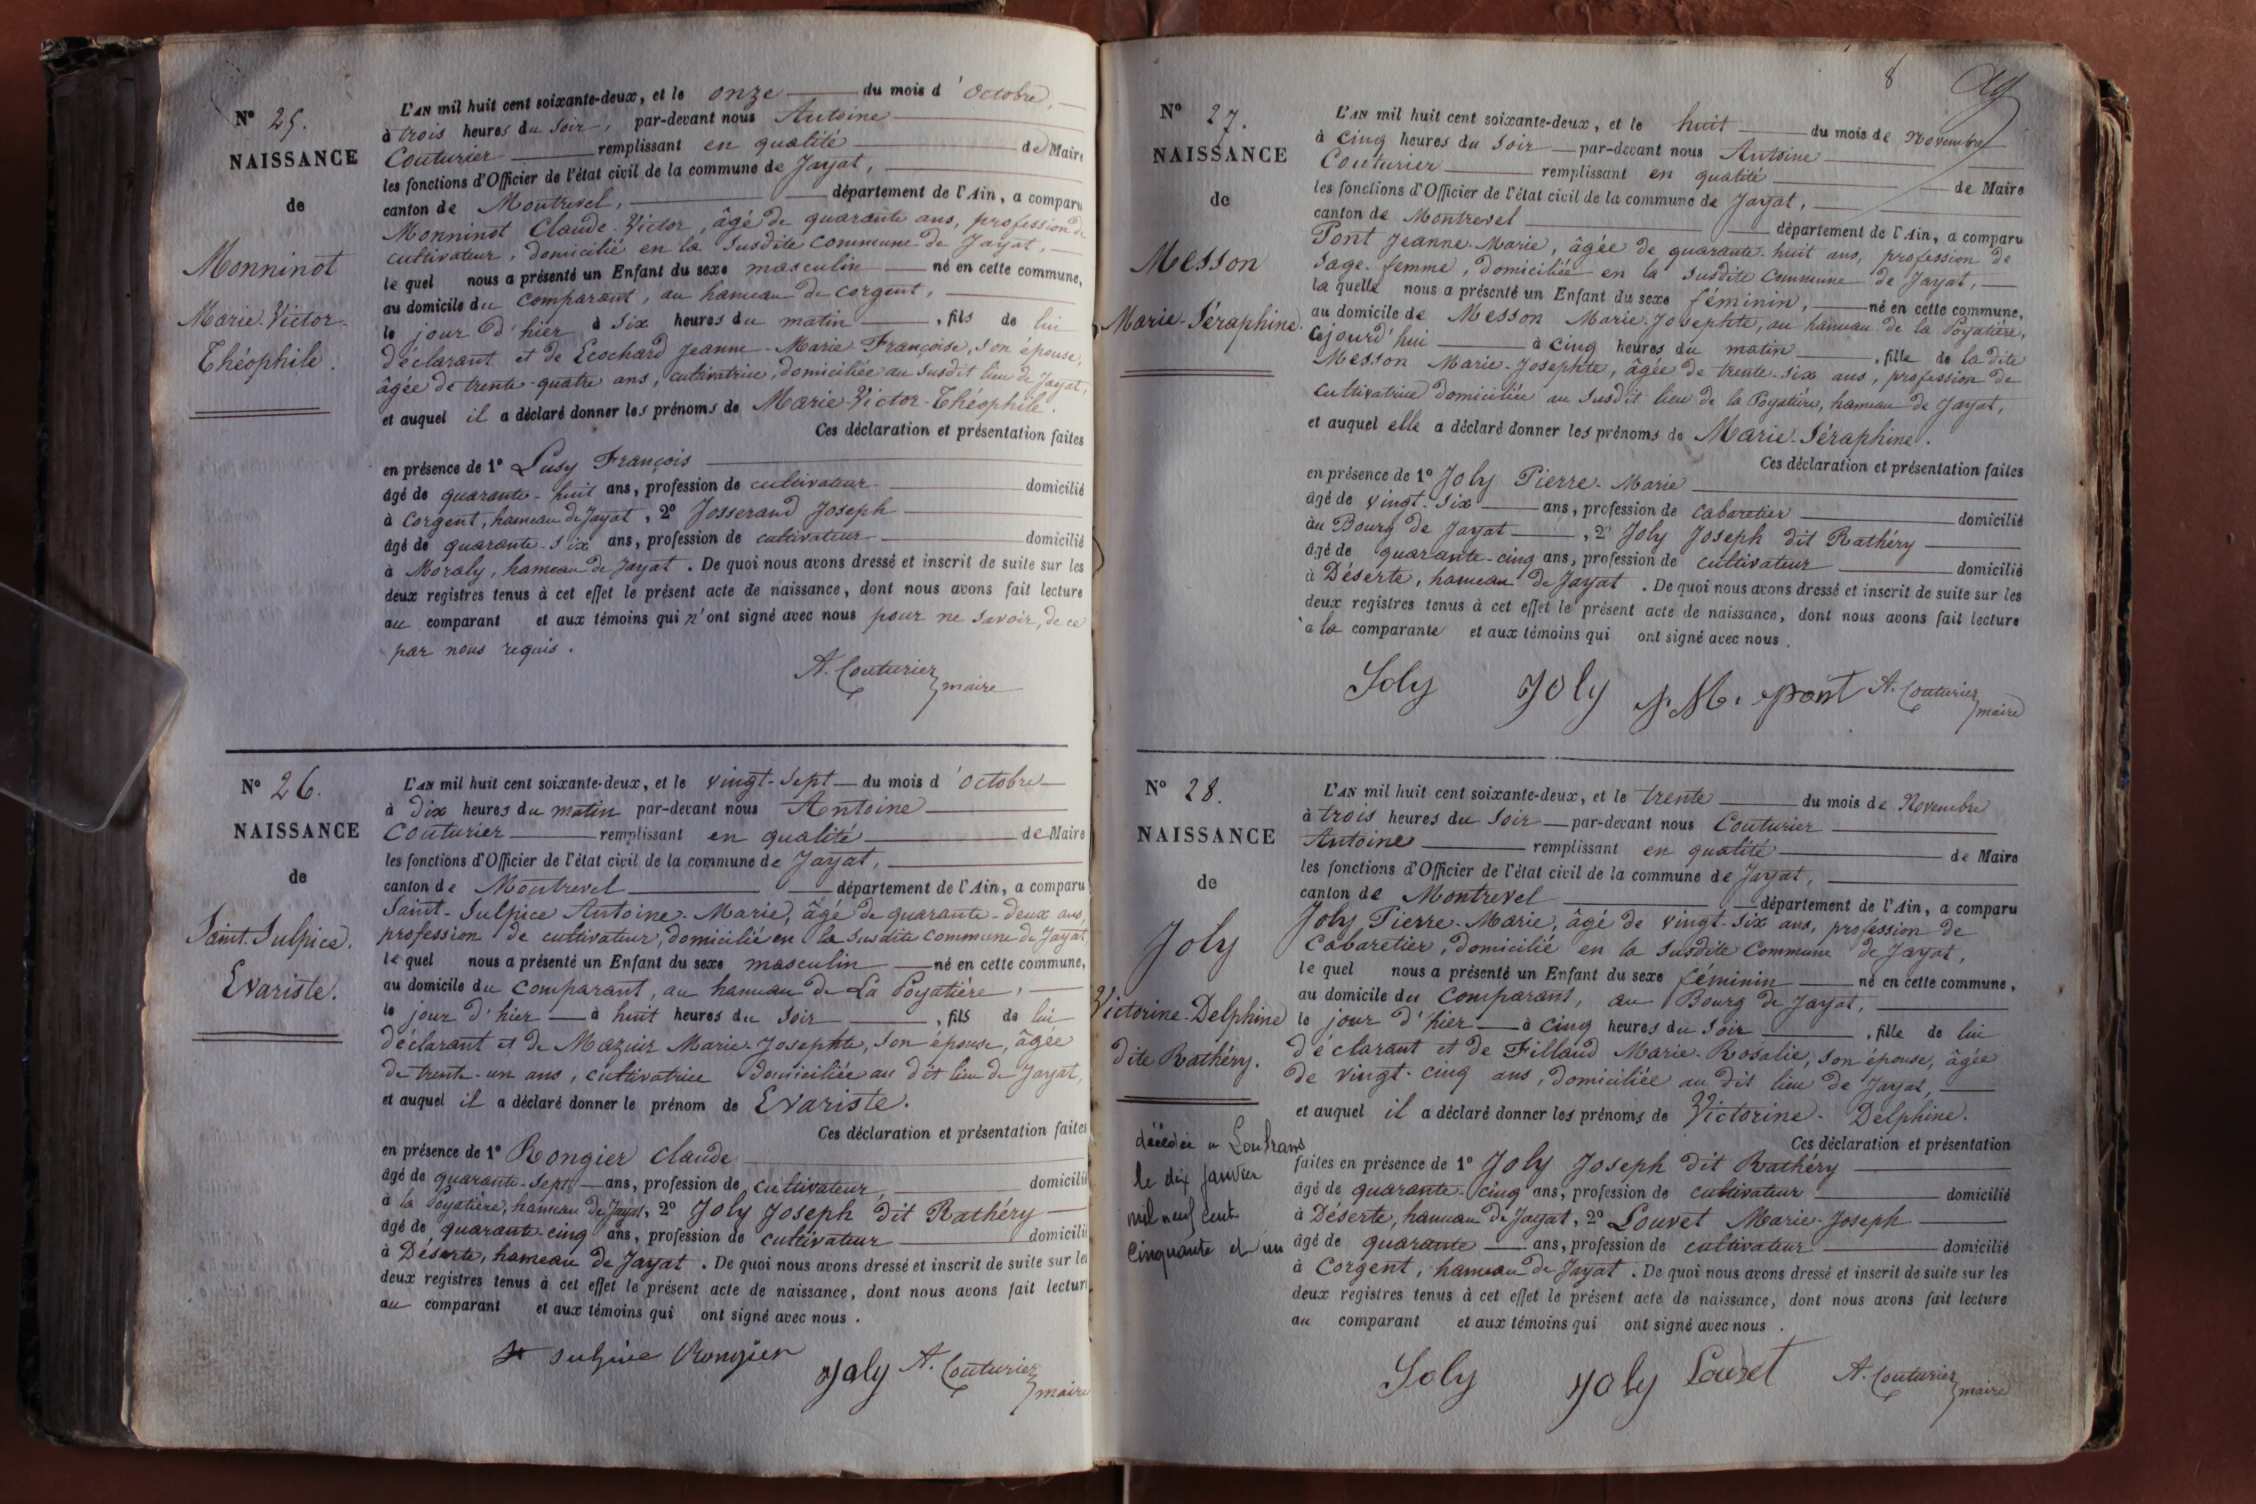 N° 25.
NAISSANCE
de
Monninot
Marie-Victor-
Théophile.
L'AN mil huit cent soixante-deux, et le onze du mois d'Octobre,
à trois heures du soir, par-devant nous Antoine
Couturier remplissant en qualité de Maire
les fonctions d'Officier de l'état civil de la commune de Jayat,
canton de Montrevel, département de l'Ain, a comparu
Monninot Claude-Victor, âgé de quarante ans, profession de
cultivateur, domicilié en la susdite commune de Jayat,
lequel nous a présenté un Enfant du sexe masculin né en cette commune,
au domicile du comparant, au hameau de Corgent,
le jour d'hier à six heures du matin, fils de lui
déclarant et de Ecochard Jeanne-Marie Françoise, son épouse,
âgée de trente-quatre ans, cultivatrice, domiciliée au susdit lieu de Jayat,
et auquel il a déclaré donner les prénoms de Marie Victor-Théophile.
Ces déclaration et présentation faites
en présence de 1° Lusy François
âgé de quarante-huit ans, profession de cultivateur domicilié
à Corgent, hameau de Jayat, 2° Josserand Joseph
âgé de quarante-six ans, profession de cultivateur domicilié
à Moraly, hameau de Jayat. De quoi nous avons dressé et inscrit de suite sur les
deux registres tenus à cet effet le présent acte de naissance, dont nous avons fait lecture
au comparant et aux témoins qui n'ont signé avec nous pour ne savoir, de ce
par nous requis.
A. Couturier
maire
N° 26.
NAISSANCE
de
Saint-Sulpice.
Evariste.
L'AN mil huit cent soixante-deux, et le vingt-sept du mois d'Octobre
à dix heures du matin par-devant nous Antoine
Couturier remplissant en qualité de Maire
les fonctions d'Officier de l'état civil de la commune de Jayat,
canton de Montrevel département de l'Ain, a comparu
Saint-Sulpice Antoine-Marie, âgé de quarante-deux ans,
profession de cultivateur, domicilié en la susdite commune de Jayat,
lequel nous a présenté un Enfant du sexe masculin né en cette commune,
au domicile du comparant, au hameau de La Poyatière,
le jour d'hier à huit heures du soir, fils de lui
déclarant et de Mazuir Marie-Josephte, son épouse, âgée
de trente-un ans, cultivatrice domiciliée au dit lieu de Jayat,
et auquel il a déclaré donner le prénom de Evariste.
Ces déclaration et présentation faites
en présence de 1° Rongier Claude
âgé de quarante-sept ans, profession de cultivateur, domicilié
à la Poyatière, hameau de Jayat, 2° Joly Joseph dit Rathéry
âgé de quarante-cinq ans, profession de cultivateur domicilié
à Déserte, hameau de Jayat. De quoi nous avons dressé et inscrit de suite sur les
deux registres tenus à cet effet le présent acte de naissance, dont nous avons fait lecture
au comparant et aux témoins qui ont signé avec nous.
St sulpice Rongier Joly A. Couturier
maire
8
N° 27.
NAISSANCE
de
Messon
Marie-Séraphine.
L'AN mil huit cent soixante-deux, et le huit du mois de Novembre
à cinq heures du soir par-devant nous Antoine
Couturier remplissant en qualité de Maire
les fonctions d'Officier de l'état civil de la commune de Jayat,
canton de Montrevel département de l'Ain, a comparu
Pont Jeanne-Marie, âgée de quarante-huit ans, profession de
sage-femme, domiciliée en la susdite commune de Jayat,
laquelle nous a présenté un Enfant du sexe féminin, né en cette commune,
au domicile de Messon Marie-Josephte, au hameau de la Poyatière,
cejourd'hui à cinq heures du matin, fille de la dite
Messon Marie-Josephte, âgée de trente-six ans, profession de
cultivatrice domiciliée au susdit lieu de la Poyatière, hameau de Jayat,
et auquel elle a déclaré donner les prénoms de Marie-Séraphine.
Ces déclaration et présentation faites
en présence de 1° Joly Pierre-Marie
âgé de vingt-six ans, profession de cabaretier domicilié
au Bourg de Jayat, 2° Joly Joseph dit Rathéry
âgé de quarante-cinq ans, profession de cultivateur domicilié
à Déserte, hameau de Jayat. De quoi nous avons dressé et inscrit de suite sur les
deux registres tenus à cet effet le présent acte de naissance, dont nous avons fait lecture
à la comparante et aux témoins qui ont signé avec nous.
Joly Joly J. M. pont A. Couturier
maire
N° 28.
NAISSANCE
de
Joly
Victorine-Delphine
dite Rathéry.
décédée à Loubrans
le dix Janvier
mil neuf cent
Cinquante et un
L'AN mil huit cent soixante-deux, et le trente du mois de Novembre
à trois heures du soir par-devant nous Couturier
Antoine remplissant en qualité de Maire
les fonctions d'Officier de l'état civil de la commune de Jayat,
canton de Montrevel département de l'Ain, a comparu
Joly Pierre-Marie, âgé de vingt-six ans, profession de
Cabaretier, domicilié en la susdite Commune de Jayat,
lequel nous a présenté un Enfant du sexe féminin né en cette commune,
au domicile du comparant, au Bourg de Jayat,
le jour d'hier à cinq heures du soir, fille de lui
déclarant et de Fillaud Marie-Rosalie, son épouse, âgée
de vingt-cinq ans, domiciliée au dit lieu de Jayat,
et auquel il a déclaré donner les prénoms de Victorine-Delphine.
Ces déclaration et présentation
faites en présence de 1° Joly Joseph dit Rathéry
âgé de quarante-cinq ans, profession de cultivateur domicilié
à Déserte, hameau de Jayat, 2° Louvet Marie-Joseph
âgé de quarante ans, profession de cultivateur domicilié
à Corgent, hameau de Jayat. De quoi nous avons dressé et inscrit de suite sur les
deux registres tenus à cet effet le présent acte de naissance, dont nous avons fait lecture
au comparant et aux témoins qui ont signé avec nous.
Joly Joly Louvet A. Couturier
maire